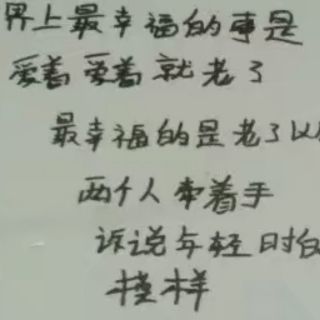 界上最幸福的事是
爱着爱着就老了
最幸福的是老了以
两个人牵着手
诉说年轻时的
模样